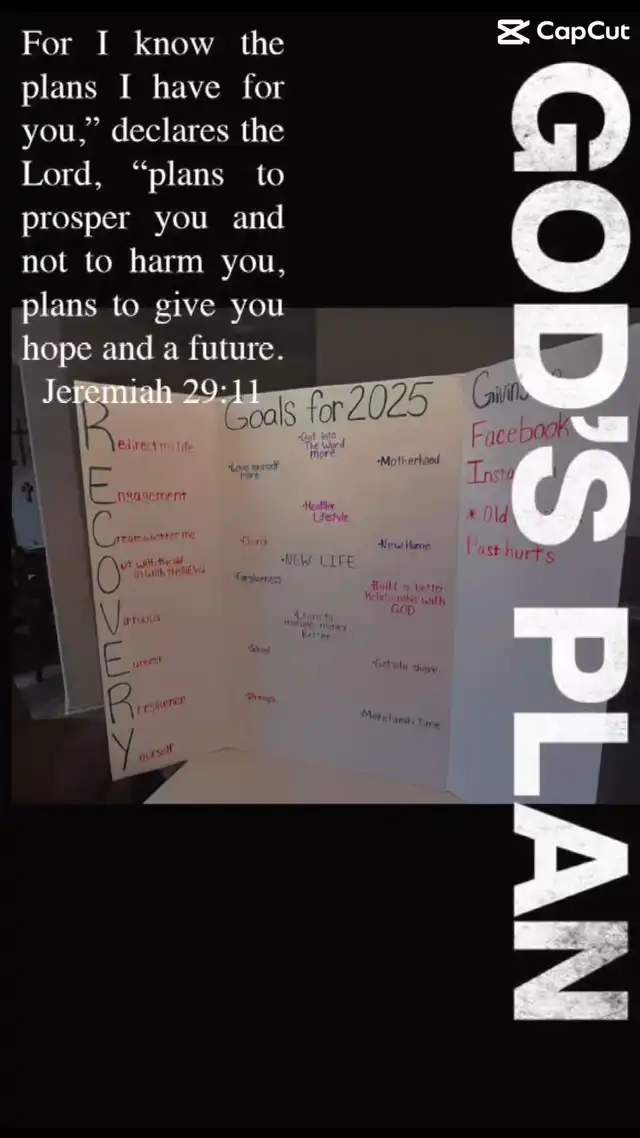 For I know the
plans I have for
you,” declares the
Lord, “plans to
prosper you and
not to harm you,
plans to give you
hope and a future.
Jeremiah 29:11
CapCut
GOD'S PLAN
Redirect my life
Engagement
Create a better me
Out with the old
in with the NEW
Virtuous
Resilience
Yourself
Goals for 2025
·Get into
The Word
more
·Love yourself
more
·Motherhood
·Healthy
Lifestyle
·Church
·New Home
·NEW LIFE
·Forgiveness
·Build a better
Relationship with
GOD
·Learn to
manage money
Better
·Get into shape
·More family Time
Giving
Facebook
* Old
Past hurts